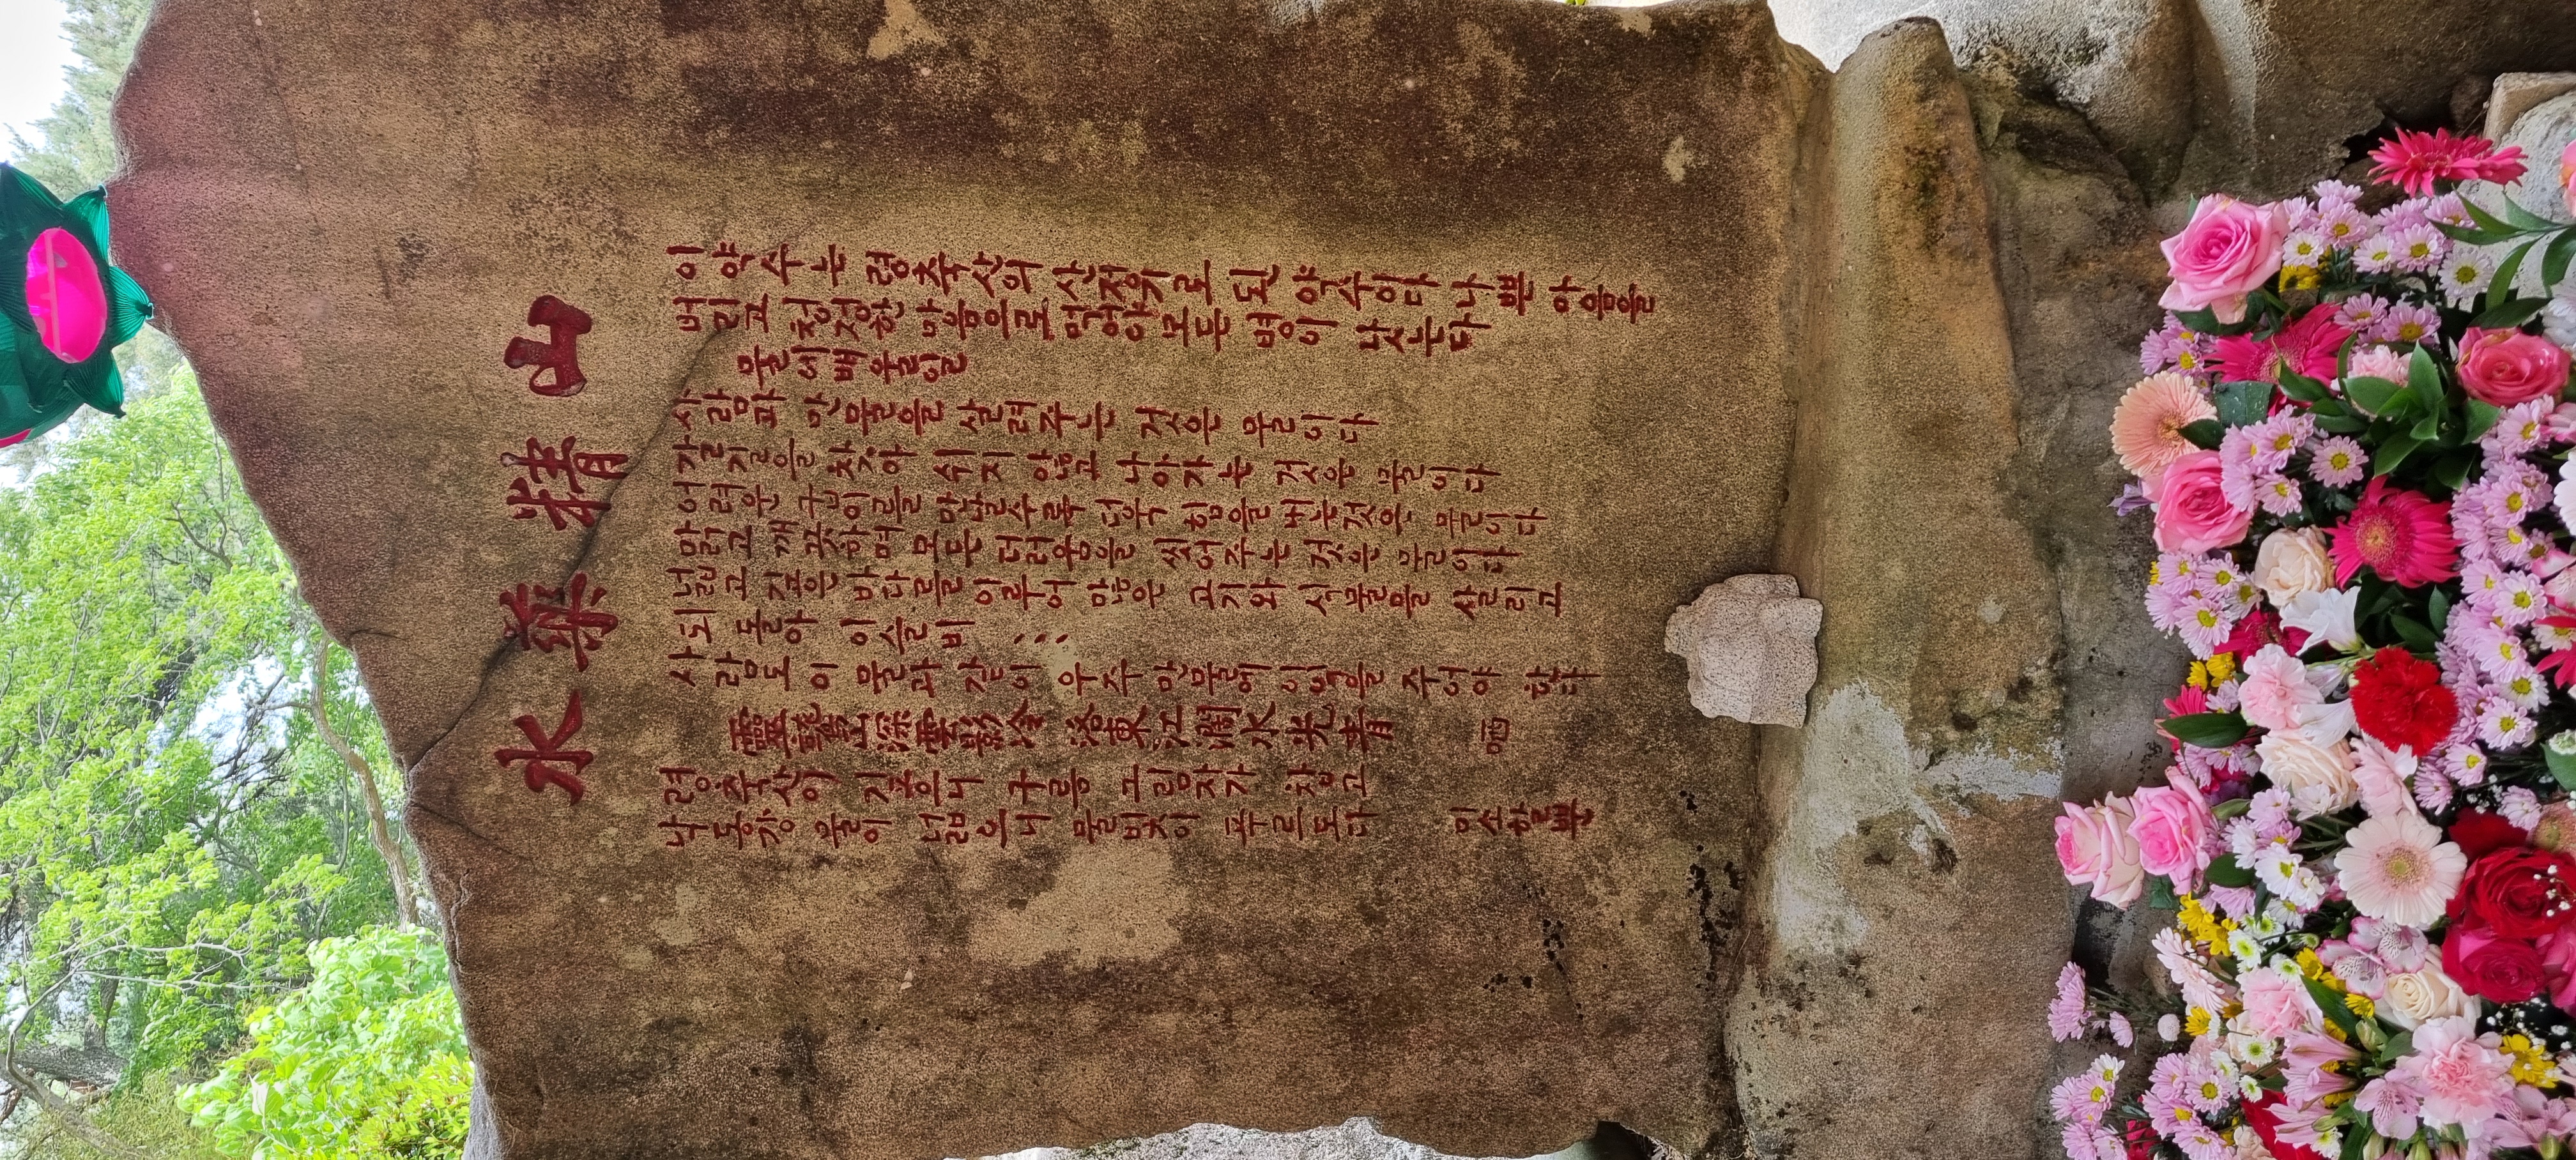 山精藥水
이 약수는 령축산의 산정기로 된 약수이다 나쁜 마음을
버리고 청정한 마음으로 먹어야 모든 병이 낫는다
물에 배울일
사람과 만물을 살려주는 것은 물이다
갈길을 찾아 쉬지 않고 나아가는 것은 물이다
어려운 굽이를 만날수록 더욱 힘을 내는것은 물이다
맑고 깨끗하며 모든 더러움을 씻어주는 것은 물이다
넓고 깊은 바다를 이루어 많은 고기와 식물을 살리고
되돌아 이슬비 ...
사람도 이 물과 같이 우주 만물에 이익을 주어야 한다
靈鷲山深雲影冷 洛東江濶水光靑 哂
령축산이 깊으니 구름 그림자가 차고
낙동강 물이 넓으니 물빛이 푸르도다 미소할뿐